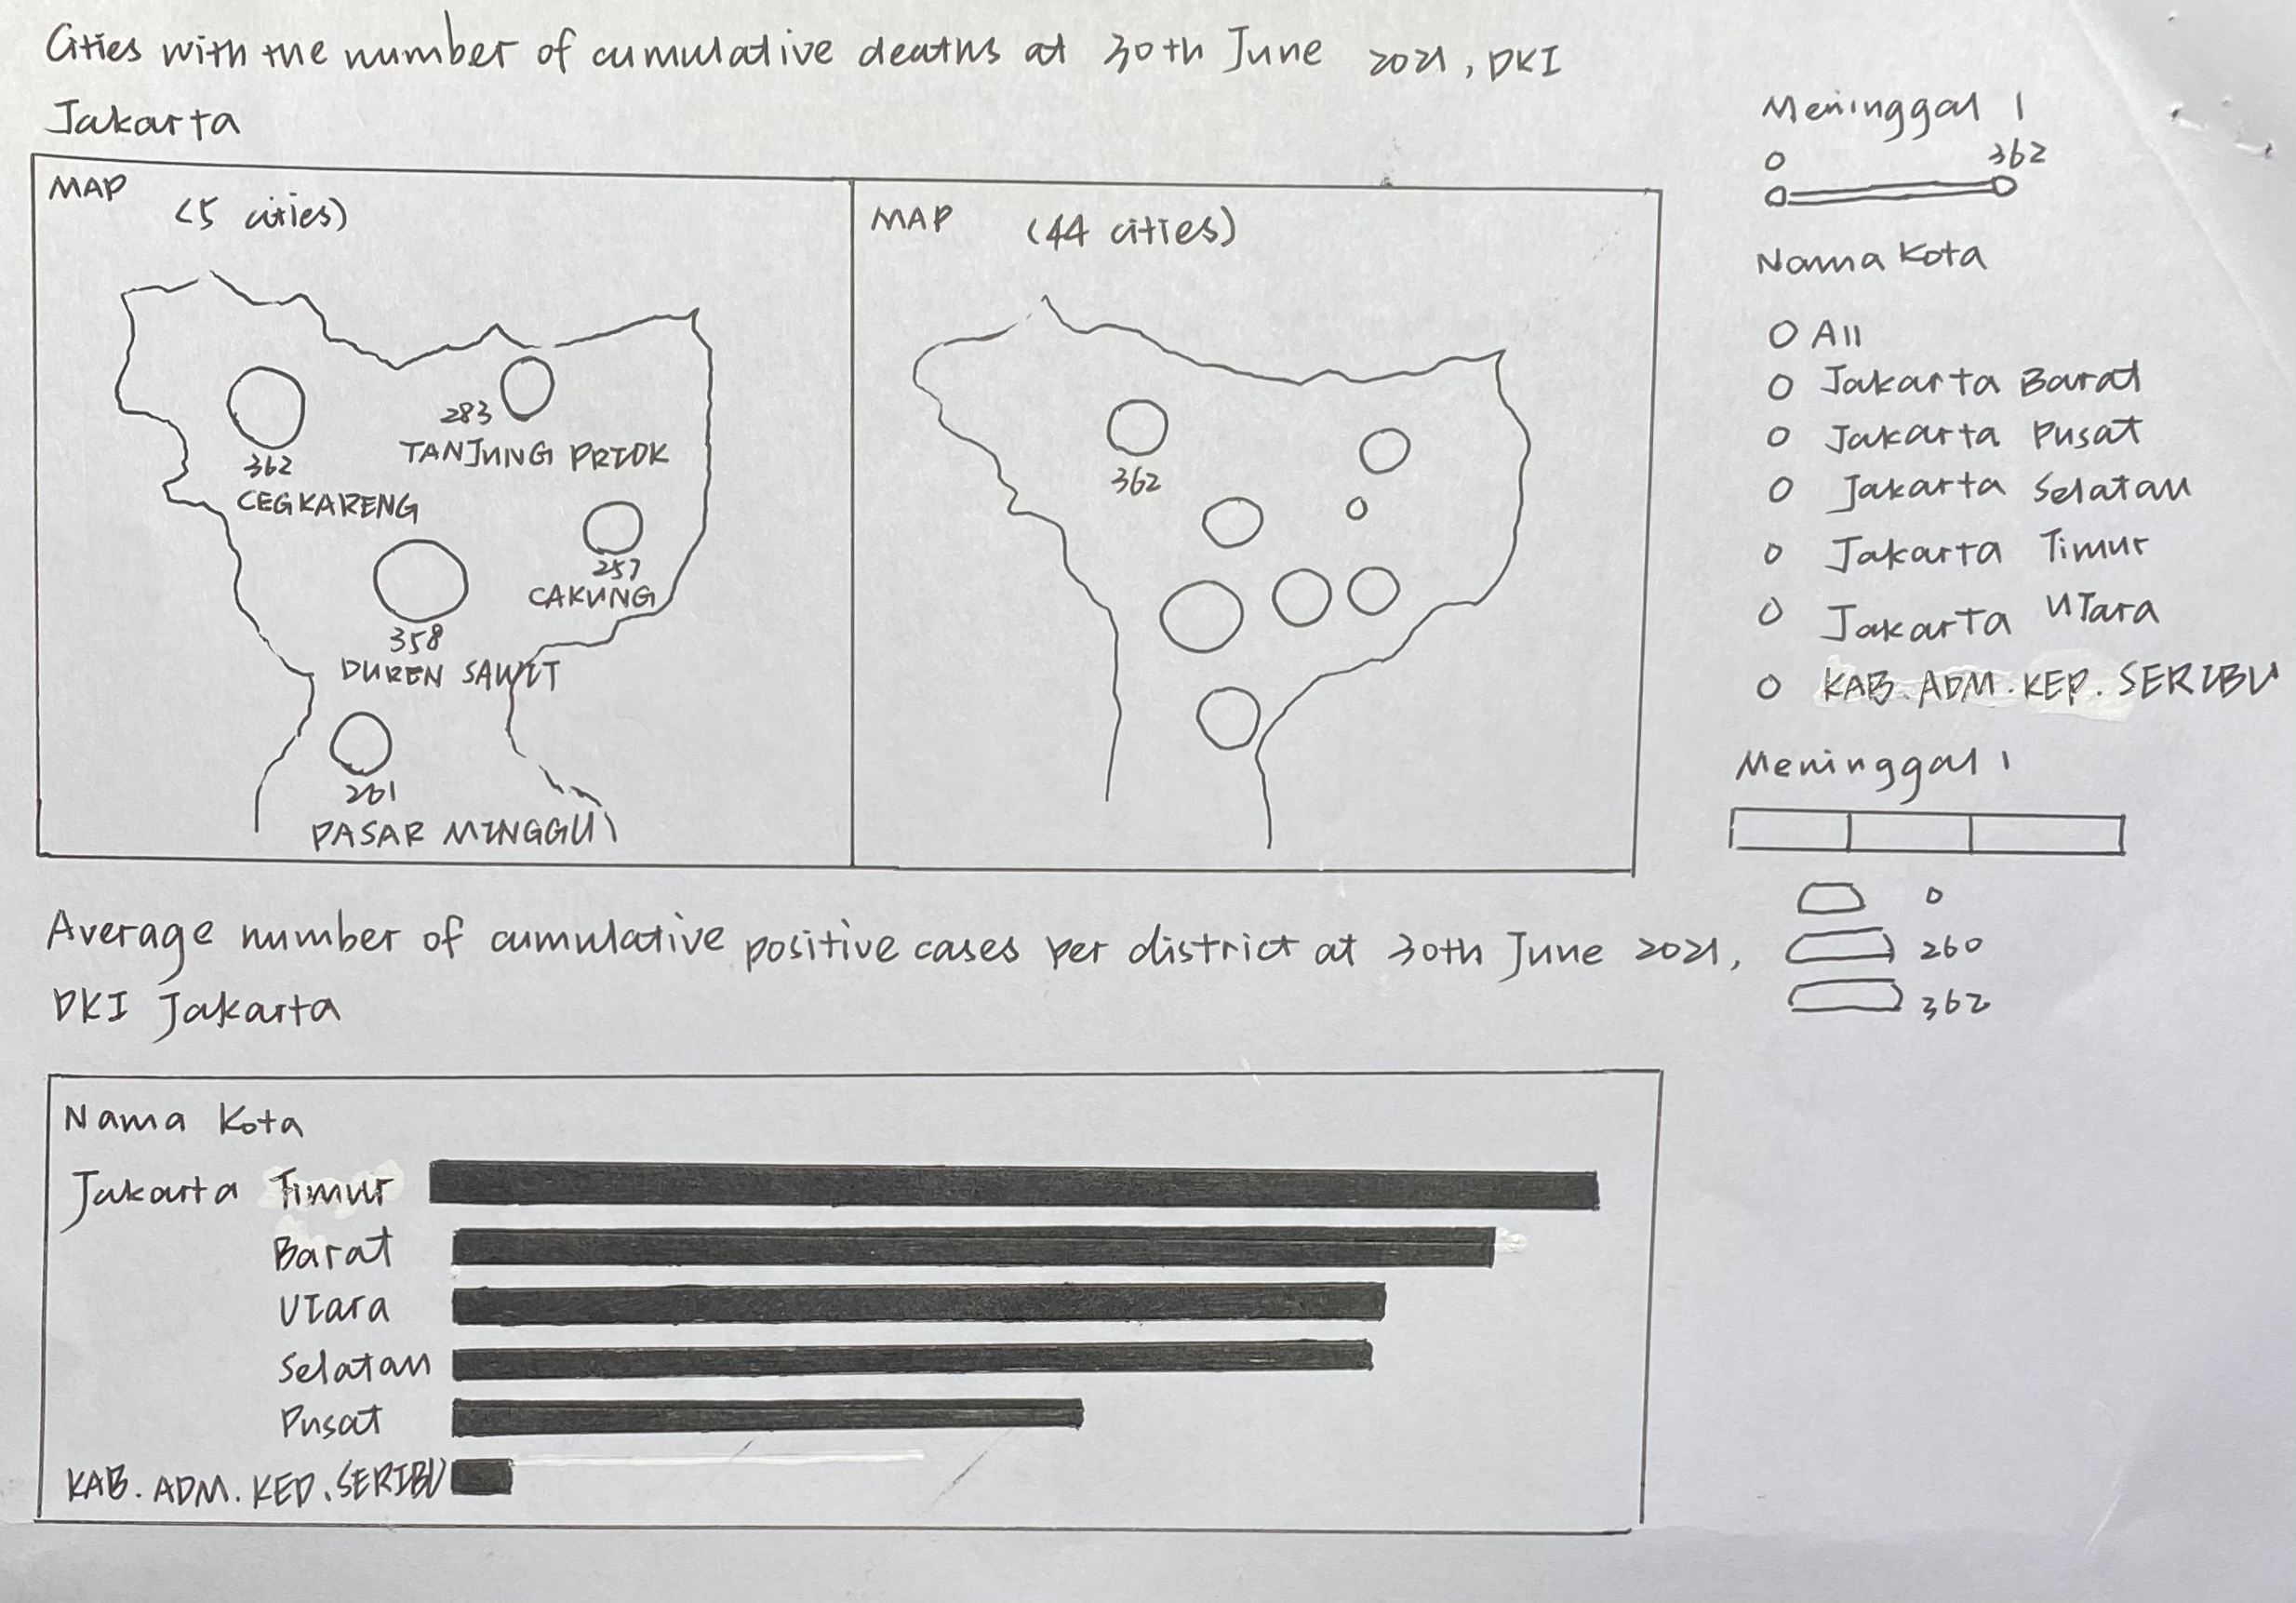 Cities with the number of cumulative deaths at 30th June 2021, DKI
Jakarta
MAP
(5 cities)
283
TANJUNG PRIOK
362
CEGKARENG
257
CAKUNG
358
DUREN SAWIT
261
PASAR MINGGU
MAP
(44 cities)
362
Meninggal 1
0 362
Nama Kota
All
Jakarta Barat
Jakarta Pusat
Jakarta Selatan
Jakarta Timur
Jakarta UTara
KAB. ADM. KEP. SERIBU
Meninggal 1
0
260
362
Average number of cumulative positive cases per district at 30th June 2021,
DKI Jakarta
Nama Kota
Jakarta Timur
Barat
UTara
Selatan
Pusat
KAB. ADM. KEP. SERIBU